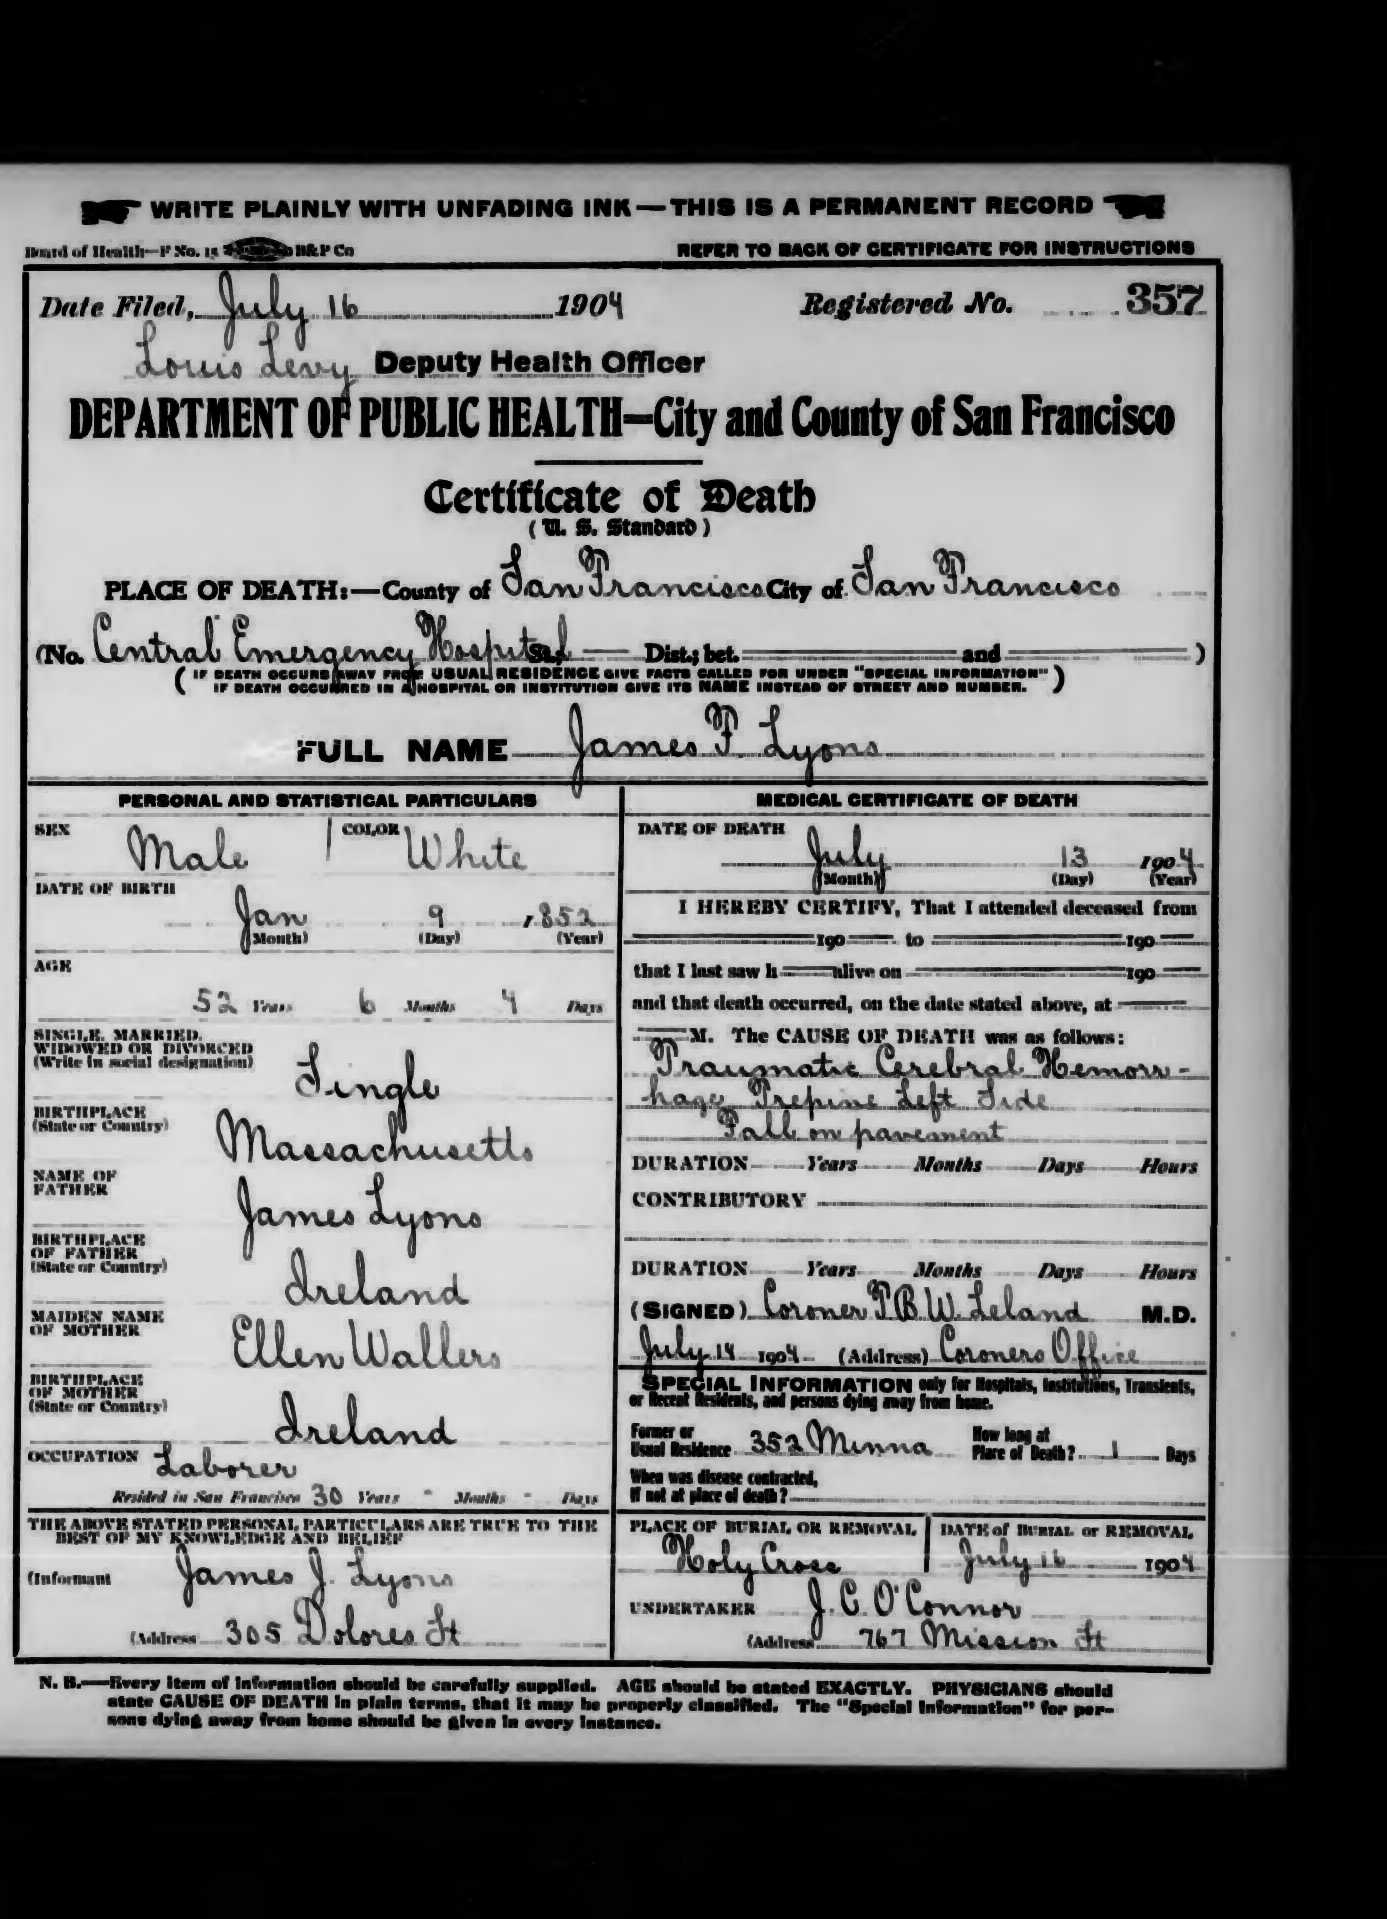 WRITE PLAINLY WITH UNFADING INK—THIS IS A PERMANENT RECORD
Board of Health—F No. 15 B&P Co REFER TO BACK OF CERTIFICATE FOR INSTRUCTIONS
Date Filed, July 16 1904 Registered No. 357
Louis Levy Deputy Health Officer
DEPARTMENT OF PUBLIC HEALTH—City and County of San Francisco
Certificate of Death
(U. S. Standard)
PLACE OF DEATH:—County of San Francisco City of San Francisco
(No. Central Emergency Hospital St.; Dist.; bet. and )
(IF DEATH OCCURS AWAY FROM USUAL RESIDENCE GIVE FACTS CALLED FOR UNDER "SPECIAL INFORMATION"
IF DEATH OCCURRED IN A HOSPITAL OR INSTITUTION GIVE ITS NAME INSTEAD OF STREET AND NUMBER.)
FULL NAME James F. Lyons
PERSONAL AND STATISTICAL PARTICULARS
SEX Male COLOR White
DATE OF BIRTH
Jan 9 1852
(Month) (Day) (Year)
AGE
52 Years 6 Months 4 Days
SINGLE, MARRIED,
WIDOWED OR DIVORCED
(Write in social designation)
Single
BIRTHPLACE
(State or Country)
Massachusetts
NAME OF
FATHER
James Lyons
BIRTHPLACE
OF FATHER
(State or Country)
Ireland
MAIDEN NAME
OF MOTHER
Ellen Wallers
BIRTHPLACE
OF MOTHER
(State or Country)
Ireland
OCCUPATION Laborer
Resided in San Francisco 30 Years - Months - Days
THE ABOVE STATED PERSONAL PARTICULARS ARE TRUE TO THE
BEST OF MY KNOWLEDGE AND BELIEF
(Informant James J. Lyons
(Address 305 Dolores St
MEDICAL CERTIFICATE OF DEATH
DATE OF DEATH
July 13 1904
(Month) (Day) (Year)
I HEREBY CERTIFY, That I attended deceased from
190 to 190
that I last saw h alive on 190
and that death occurred, on the date stated above, at
M. The CAUSE OF DEATH was as follows:
Traumatic Cerebral Hemorr-
hage Left Side
Fall on pavement
DURATION Years Months Days Hours
CONTRIBUTORY
DURATION Years Months Days Hours
(SIGNED) Coroner T B W. Leland M.D.
July 14 1904 (Address) Coroners Office
SPECIAL INFORMATION only for Hospitals, Institutions, Transients,
or Recent Residents, and persons dying away from home.
Former or
Usual Residence 352 Minna
How long at
Place of Death? 1 Days
When was disease contracted,
If not at place of death?
PLACE OF BURIAL OR REMOVAL
Holy Cross
DATE of BURIAL or REMOVAL
July 16 1904
UNDERTAKER J. C. O'Connor
(Address 767 Mission St
N. B.—Every item of information should be carefully supplied. AGE should be stated EXACTLY. PHYSICIANS should
state CAUSE OF DEATH in plain terms, that it may be properly classified. The "Special Information" for per-
sons dying away from home should be given in every instance.